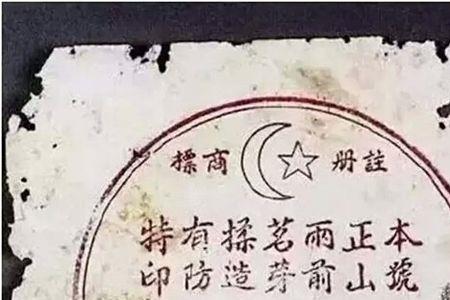 註册商標
本號
正山
雨前
茗芽
揉造
有防
特印